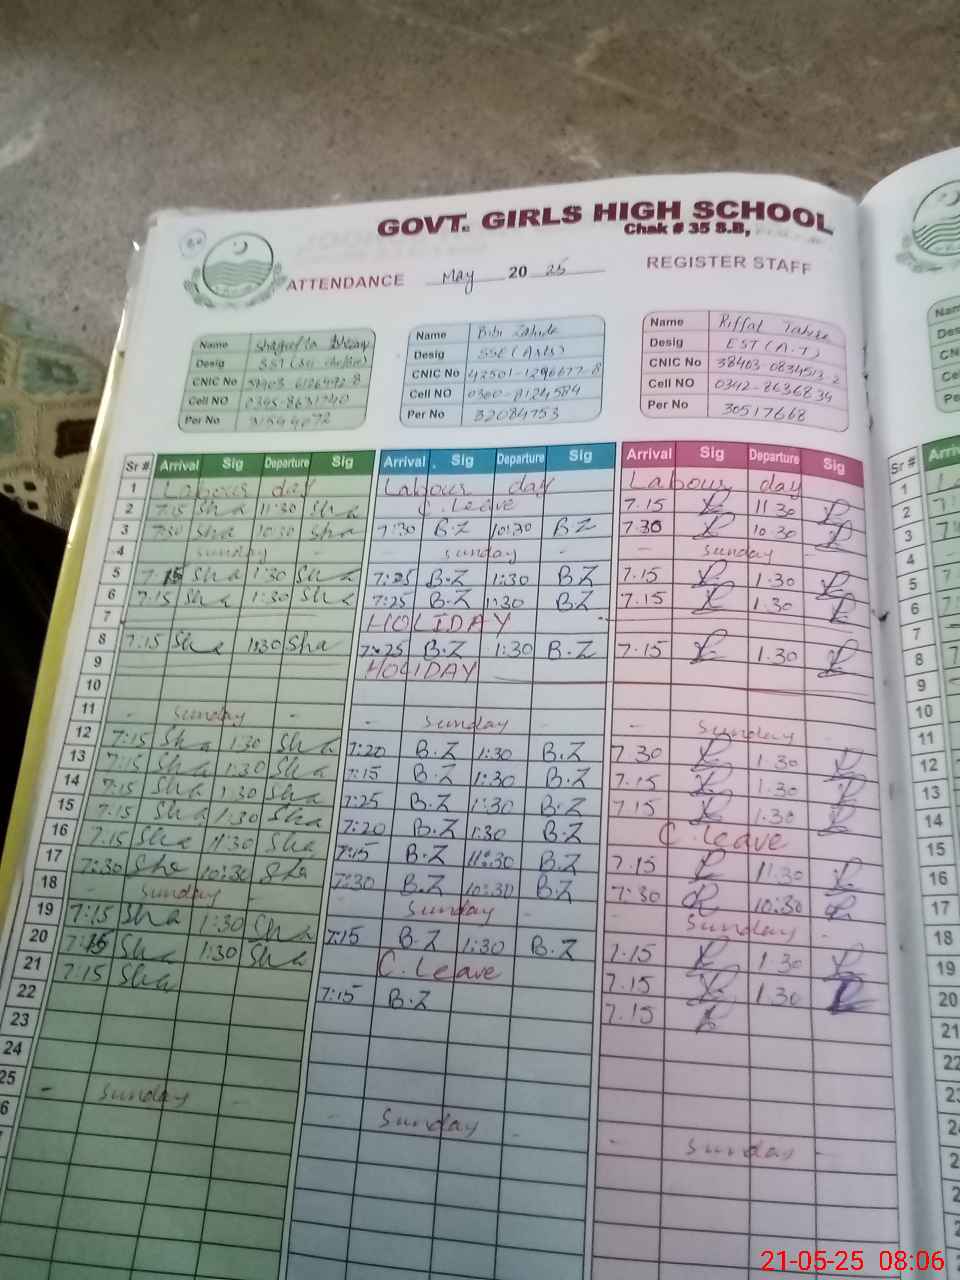 GOVT. GIRLS HIGH SCHOOL
Chak # 35 S.B,
ATTENDANCE May 20 25 REGISTER STAFF
Name Shagufta
Desig SST (Sci
CNIC No
Cell NO
Per No
Name Bibi Zahida
Desig SSE (Arts)
CNIC NO 42501-1296677-8
Cell NO 0300-8124584
Per No 32084753
Name Riffat Tahira
Desig EST (A.T)
CNIC No 38403-0834513-2
Cell NO 0342-8636834
Per No 30517668
Sr # Arrival Sig Departure Sig Arrival Sig Departure Sig Arrival Sig Departure Sig Sr #
1 Labour day Labour day Labour day 1
2 7:15 Sha 11:30 Sha C. leave 7.15 11.30 2
3 7:30 Sha 10:30 Sha 7:30 B.Z 10:30 B.Z 7.30 10.30 3
4 - Sunday - - Sunday - - Sunday - 4
5 7.15 Sha 1:30 Sha 7:25 B.Z 1:30 B.Z 7.15 1.30 5
6 7:15 Sha 1:30 Sha 7:25 B.Z 1:30 B.Z 7.15 1.30 6
7 HOLIDAY 7
8 7:15 Sha 1:30 Sha 7:25 B.Z 1:30 B.Z 7.15 1.30 8
9 HOLIDAY 9
10 10
11 - Sunday - - Sunday - - Sunday - 11
12 7:15 Sha 1:30 Sha 7:20 B.Z 1:30 B.Z 7.30 1.30 12
13 7:15 Sha 1:30 Sha 7:15 B.Z 1:30 B.Z 7.15 1.30 13
14 7:15 Sha 1:30 Sha 7:25 B.Z 1:30 B.Z 7.15 1.30 14
15 7:15 Sha 1:30 Sha 7:20 B.Z 1:30 B.Z C. leave 15
16 7:15 Sha 11:30 Sha 7:15 B.Z 11:30 B.Z 7.15 11.30 16
17 7:30 Sha 10:30 Sha 7:30 B.Z 10:30 B.Z 7:30 10:30 17
18 - Sunday - Sunday - - Sunday - 18
19 7:15 Sha 1:30 Sha 7:15 B.Z 1:30 B.Z 7.15 1.30 19
20 7:15 Sha 1:30 Sha C. leave 7.15 1.30 20
21 7:15 Sha 7:15 B.Z 7.15 21
22 22
23 23
24 24
25 - Sunday - - Sunday - - Sunday -
21-05-25 08:06